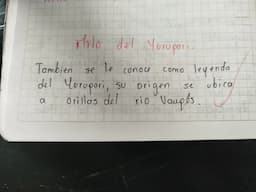 Mito del Yorupori.
Tambien se le conoce como leyenda
del Yorupori, su origen se ubica
a orillas del rio Vaupés.